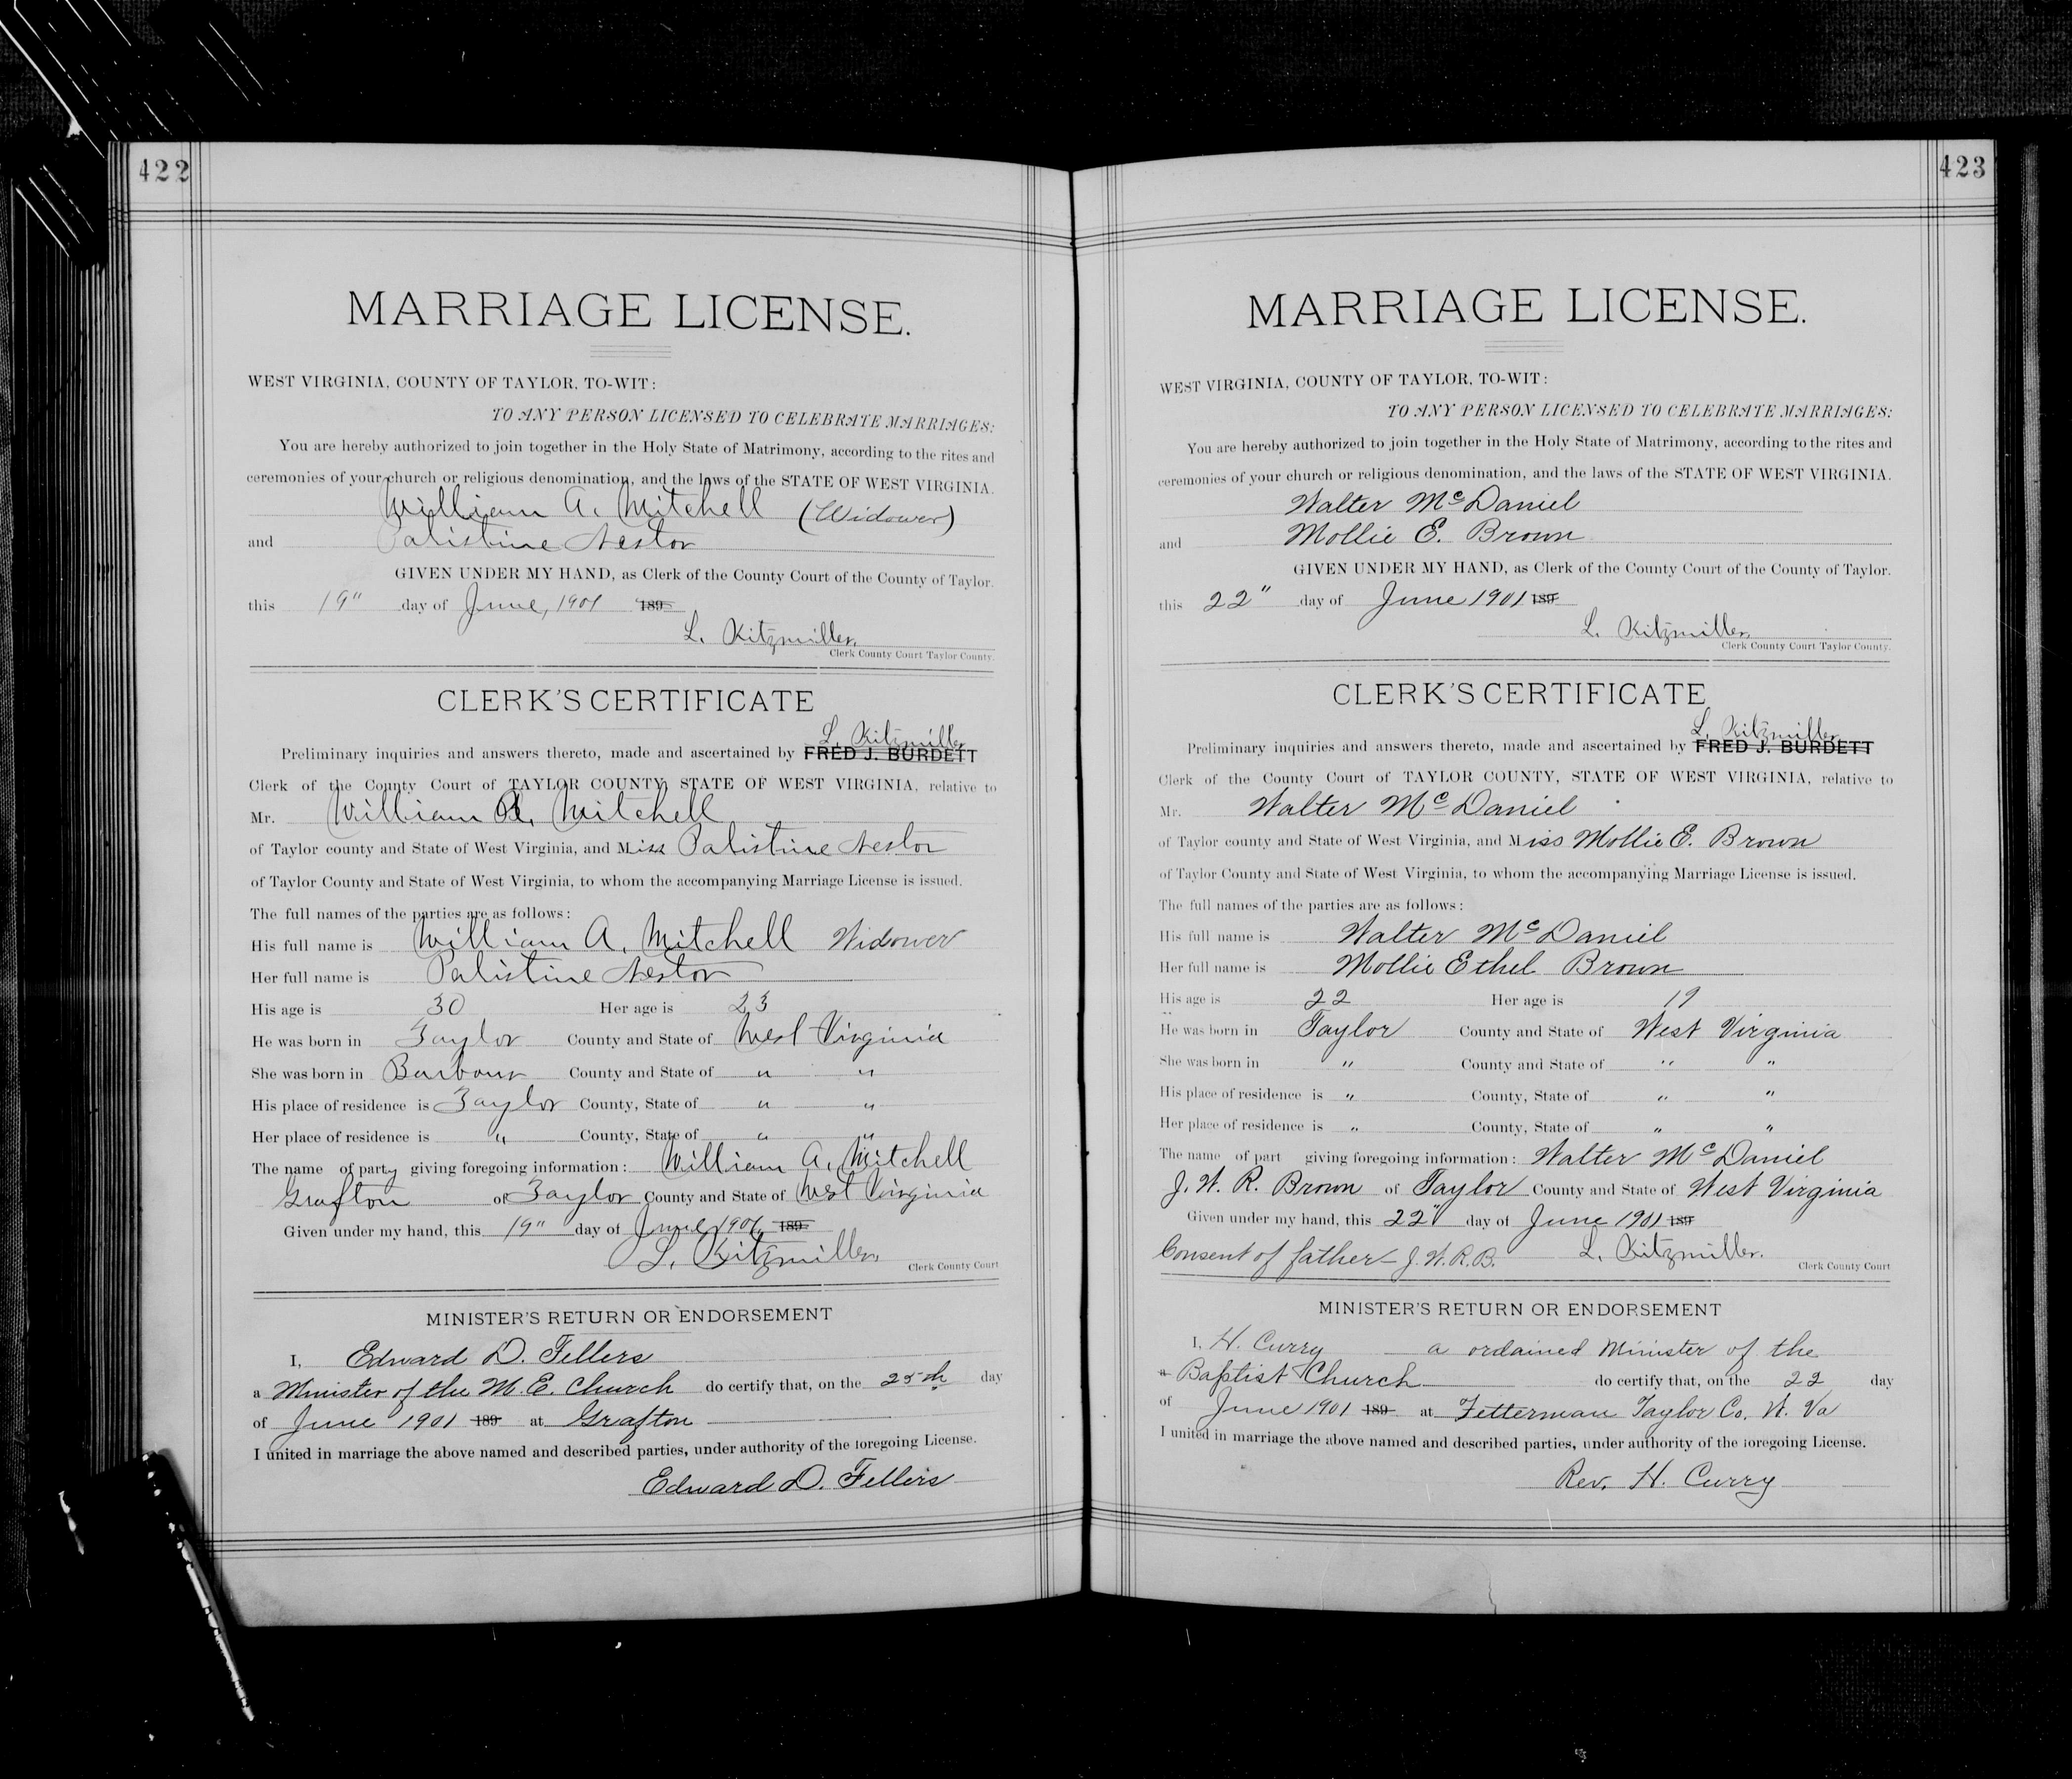 422
MARRIAGE LICENSE.
WEST VIRGINIA, COUNTY OF TAYLOR, TO-WIT:
TO ANY PERSON LICENSED TO CELEBRATE MARRIAGES:
You are hereby authorized to join together in the Holy State of Matrimony, according to the rites and
ceremonies of your church or religious denomination, and the laws of the STATE OF WEST VIRGINIA.
William A. Mitchell (Widower)
and Palistine Nestor
GIVEN UNDER MY HAND, as Clerk of the County Court of the County of Taylor.
this 19" day of June, 1901 189
L. Kitzmiller,
Clerk County Court Taylor County.
CLERK'S CERTIFICATE
L. Kitzmiller
Preliminary inquiries and answers thereto, made and ascertained by FRED J. BURDETT
Clerk of the County Court of TAYLOR COUNTY, STATE OF WEST VIRGINIA, relative to
Mr. William A. Mitchell
of Taylor county and State of West Virginia, and Miss Palistine Nestor
of Taylor County and State of West Virginia, to whom the accompanying Marriage License is issued.
The full names of the parties are as follows:
His full name is William A. Mitchell Widower
Her full name is Palistine Nestor
His age is 30 Her age is 23
He was born in Taylor County and State of West Virginia
She was born in Barbour County and State of " "
His place of residence is Taylor County, State of " "
Her place of residence is " County, State of " "
The name of party giving foregoing information: William A. Mitchell
Grafton of Taylor County and State of West Virginia
Given under my hand, this 19" day of June 1901, 189
L. Kitzmiller,
Clerk County Court
MINISTER'S RETURN OR ENDORSEMENT
I, Edward D. Fellers
a Minister of the M. E. Church do certify that, on the 25th day
of June 1901 189 at Grafton
I united in marriage the above named and described parties, under authority of the foregoing License.
Edward D. Fellers
423
MARRIAGE LICENSE.
WEST VIRGINIA, COUNTY OF TAYLOR, TO-WIT:
TO ANY PERSON LICENSED TO CELEBRATE MARRIAGES:
You are hereby authorized to join together in the Holy State of Matrimony, according to the rites and
ceremonies of your church or religious denomination, and the laws of the STATE OF WEST VIRGINIA.
Walter McDaniel
and Mollie E. Brown
GIVEN UNDER MY HAND, as Clerk of the County Court of the County of Taylor.
this 22" day of June 1901 189
L. Kitzmiller,
Clerk County Court Taylor County.
CLERK'S CERTIFICATE
L. Kitzmiller
Preliminary inquiries and answers thereto, made and ascertained by FRED J. BURDETT
Clerk of the County Court of TAYLOR COUNTY, STATE OF WEST VIRGINIA, relative to
Mr. Walter McDaniel
of Taylor county and State of West Virginia, and Miss Mollie E. Brown
of Taylor County and State of West Virginia, to whom the accompanying Marriage License is issued.
The full names of the parties are as follows:
His full name is Walter McDaniel
Her full name is Mollie Ethel Brown
His age is 22 Her age is 19
He was born in Taylor County and State of West Virginia
She was born in " County and State of " "
His place of residence is " County, State of " "
Her place of residence is " County, State of " "
The name of part giving foregoing information: Walter McDaniel
J. W. R. Brown of Taylor County and State of West Virginia
Given under my hand, this 22" day of June 1901 189
Consent of father – J. W. R. B. L. Kitzmiller.
Clerk County Court
MINISTER'S RETURN OR ENDORSEMENT
I, H. Curry a ordained Minister of the
a Baptist Church do certify that, on the 22 day
of June 1901 189 at Fetterman Taylor Co. W. Va
I united in marriage the above named and described parties, under authority of the foregoing License.
Rev. H. Curry